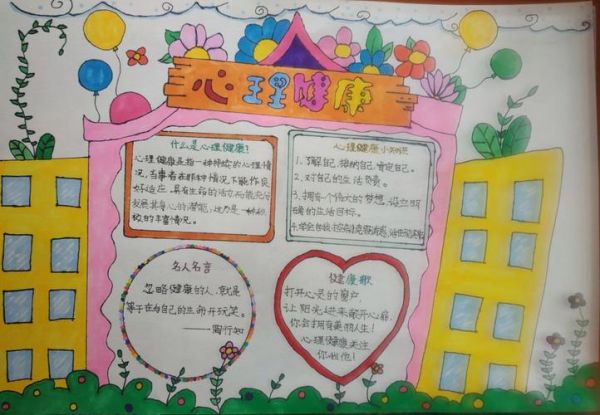 心理健康
什么是心理健康?
心理健康是指一种持续的心理情
况,当事者在那种情况下能作良
好适应,具有生命的活力,而能充分
发展其身心的潜能,这乃是一种积
极的丰富情况。
心理健康小知识
1.了解自己,接纳自己,肯定自己。
2.对自己的生活负责。
3.拥有一个伟大的梦想,设立明
确的生活目标。
4.学会自我
名人名言
忽略健康的人,就是
等于在与自己的生命开玩笑。
——陶行知
健康歌
打开心灵的窗户
让阳光进来敞开心扉,
你会拥有美丽人生!
心理健康关注
你我他!